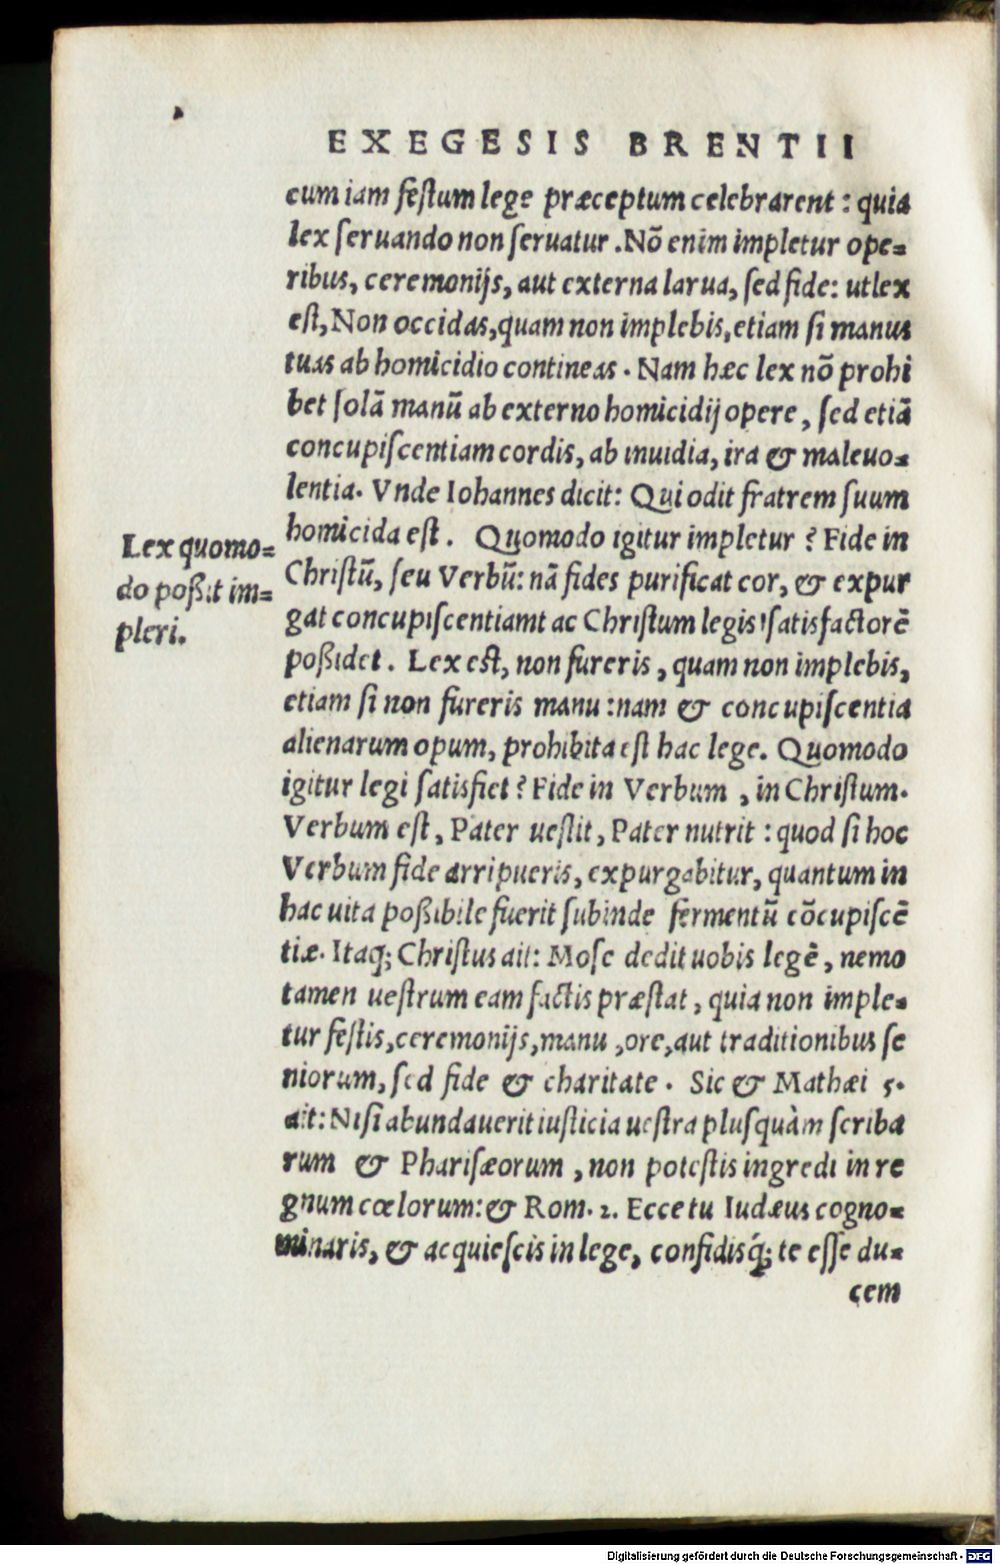 EXEGESIS BRENTII
cum iam feſtum lege præceptum celebrarent : quia
lex ſeruando non ſeruatur . Nõ enim impletur ope=
ribus, ceremonijs, aut externa larua, ſed fide: ut lex
eſt, Non occidas, quam non implebis, etiam ſi manus
tuas ab homicidio contineas . Nam hæc lex nõ prohi
bet ſolā manū ab externo homicidij opere, ſed etiā
concupiſcentiam cordis, ab inuidia, ira & maleuo=
lentia. Vnde Iohannes dicit: Qui odit fratrem ſuum
homicida eſt . Quomodo igitur impletur ? Fide in
Lex quomo=
do poßit im=
pleri.
Chriſtū, ſeu Verbū: nā fides purificat cor, & expur
gat concupiſcentiamt ac Chriſtum legis ſatisfactorē
poßidet . Lex eſt, non fureris, quam non implebis,
etiam ſi non fureris manu : nam & concupiſcentia
alienarum opum, prohibita eſt hac lege. Quomodo
igitur legi ſatisfiet ? Fide in Verbum , in Chriſtum.
Verbum eſt, Pater ueſtit, Pater nutrit : quod ſi hoc
Verbum fide arripueris, expurgabitur, quantum in
hac uita poßibile fuerit ſubinde fermentū cōcupiſcē
tiæ. Itaq; Chriſtus ait: Moſe dedit uobis legē, nemo
tamen ueſtrum eam factis præſtat, quia non imple=
tur feſtis, ceremonijs, manu , ore, aut traditionibus ſe
niorum, ſed fide & charitate . Sic & Mathæi 5.
ait: Niſi abundauerit iuſticia ueſtra pluſquàm ſcriba
rum & Phariſæorum , non poteſtis ingredi in re
gnum cœlorum: & Rom. 2. Ecce tu Iudæus cogno=
minaris, & acquieſcis in lege, confidisq́; te eſſe du=
cem
Digitalisierung gefördert durch die Deutsche Forschungsgemeinschaft - DFG